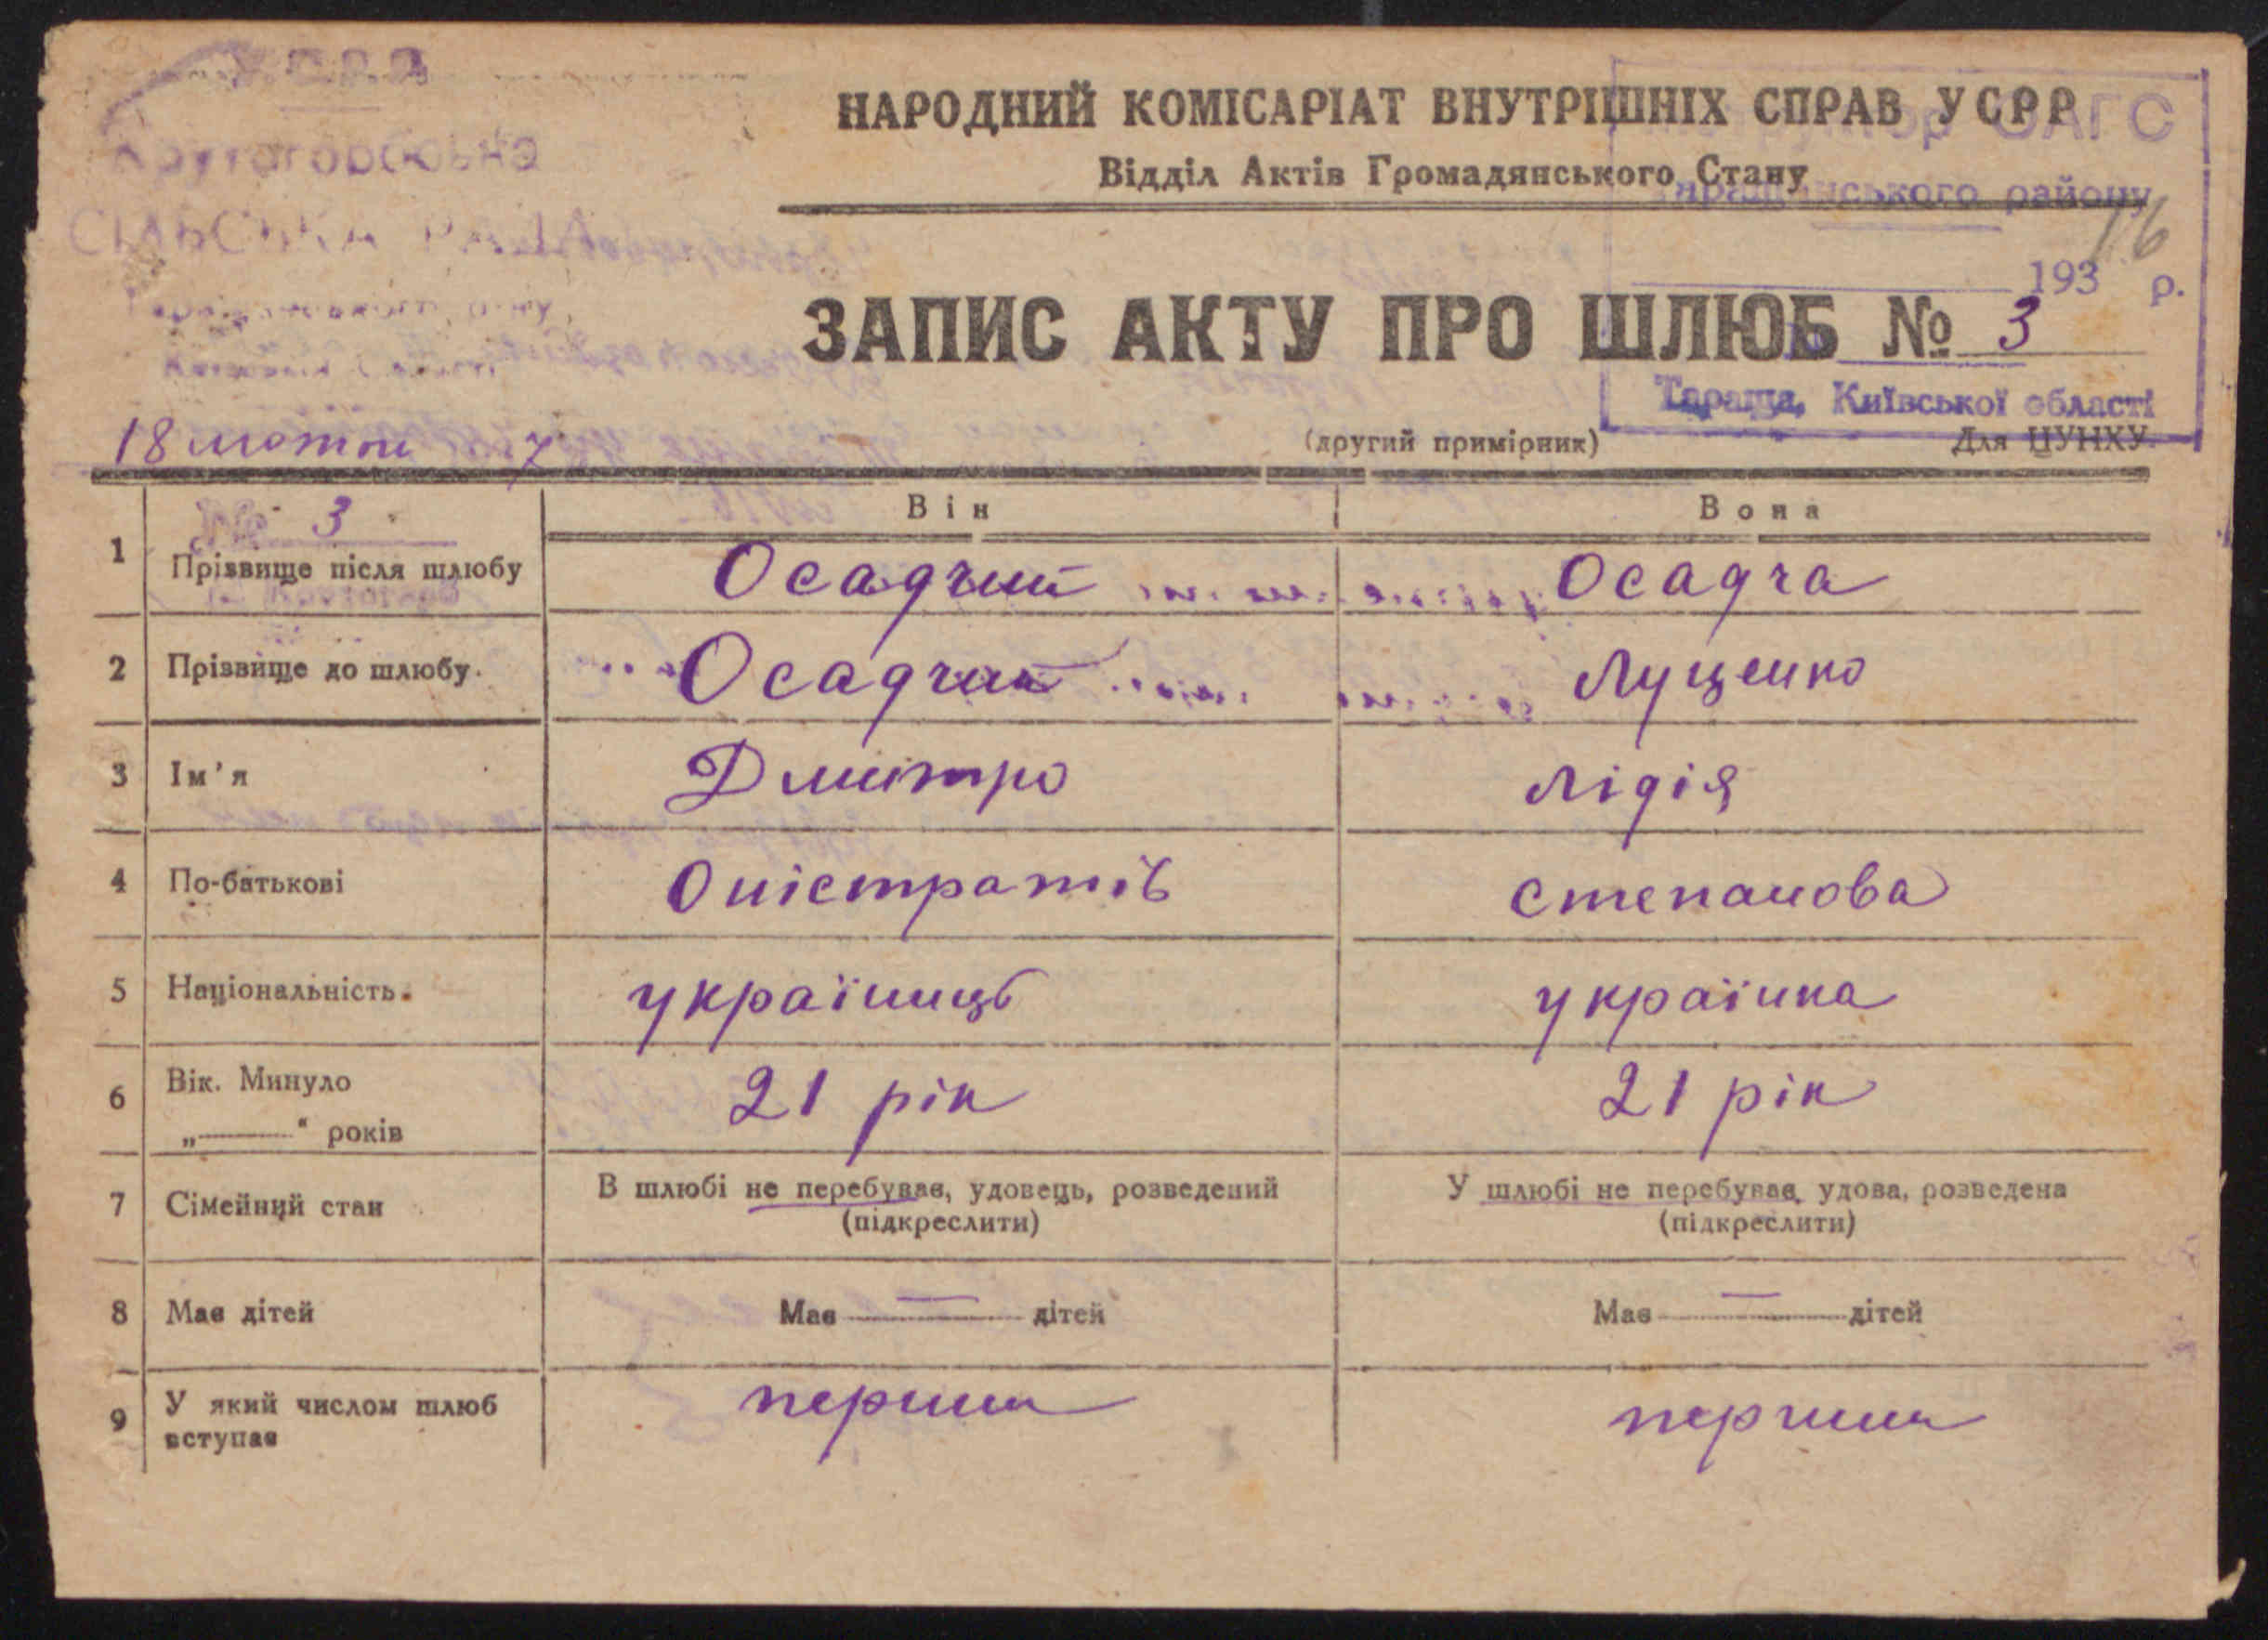 УСРР
НАРОДНИЙ КОМІСАРІАТ ВНУТРІШНІХ СПРАВ УСРР
ЗАГС
Відділ Актів Громадянського Стану
району
СІЛЬСЬКА РАДА
16
193 р.
ЗАПИС АКТУ ПРО ШЛЮБ № 3
Тараща, Київської області
18 лютого 7
(другий примірник)
Для ЦУНХУ
№ 3
Він
Вона
1 Прізвище після шлюбу Осадчий Осадча
2 Прізвище до шлюбу Осадчий Луценко
3 Ім'я Дмитро Лідія
4 По-батькові Оністратів Степанова
5 Національність українець українка
6 Вік. Минуло
„———" років 21 рік 21 рік
7 Сімейний стан В шлюбі не перебував, удовець, розведений У шлюбі не перебував, удова, розведена
(підкреслити) (підкреслити)
8 Має дітей Має — дітей Має — дітей
9 У який числом шлюб
вступає перший перший